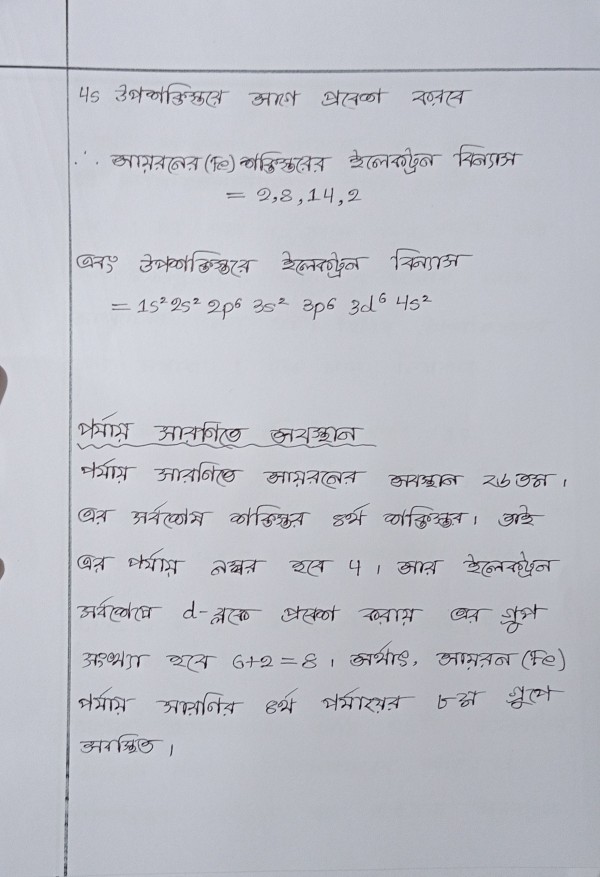 4s উপশক্তিস্তরে আগে প্রবেশ করবে
∴ আয়রনের (Fe) শক্তিস্তরের ইলেকট্রন বিন্যাস
= 2,8,14,2
এবং উপশক্তিস্তরে ইলেকট্রন বিন্যাস
= 1s² 2s² 2p⁶ 3s² 3p⁶ 3d⁶ 4s²
পর্যায় সারণিতে অবস্থান
পর্যায় সারণিতে আয়রনের অবস্থান ২৬ তম।
এর সর্বশেষ শক্তিস্তর ৪র্থ শক্তিস্তর। তাই
এর পর্যায় নম্বর হবে 4। আর ইলেকট্রন
সর্বশেষে d-ব্লকে প্রবেশ করায় এর গ্রুপ
সংখ্যা হবে 6+2=8। অর্থাৎ, আয়রন (Fe)
পর্যায় সারণির ৪র্থ পর্যায়ের ৮ম গ্রুপে
অবস্থিত।